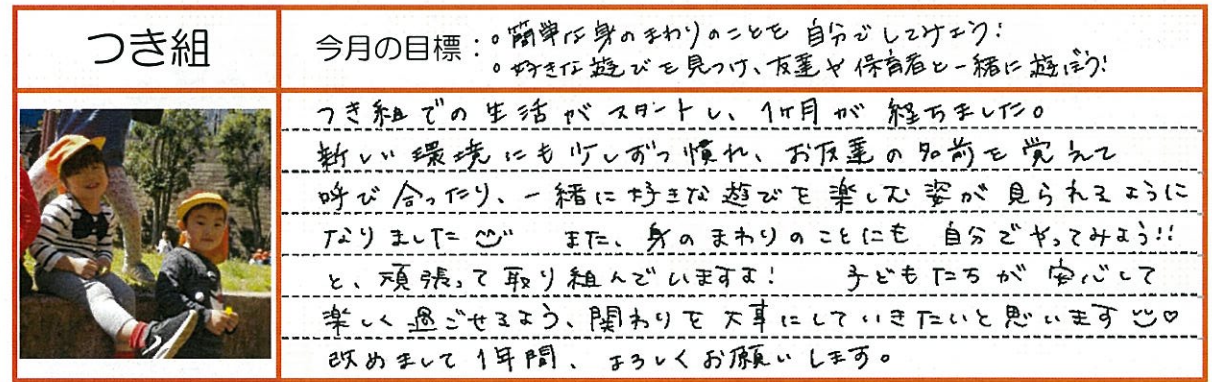 つき組
今月の目標:。簡単な身のまわりのことを自分でしてみよう!
。好きな遊びを見つけ、友達や保育者と一緒に遊ぼう!
つき組での生活がスタートし、1ヶ月が経ちました。
新しい環境にも少しずつ慣れ、お友達の名前を覚えて
呼び合ったり、一緒に好きな遊びを楽しむ姿が見られるように
なりました また、身のまわりのことにも自分でやってみよう!!
と、頑張って取り組んでいますよ! 子どもたちが安心して
楽しく過ごせるよう、関わりを大事にしていきたいと思います♡
改めまして1年間、よろしくお願いします。